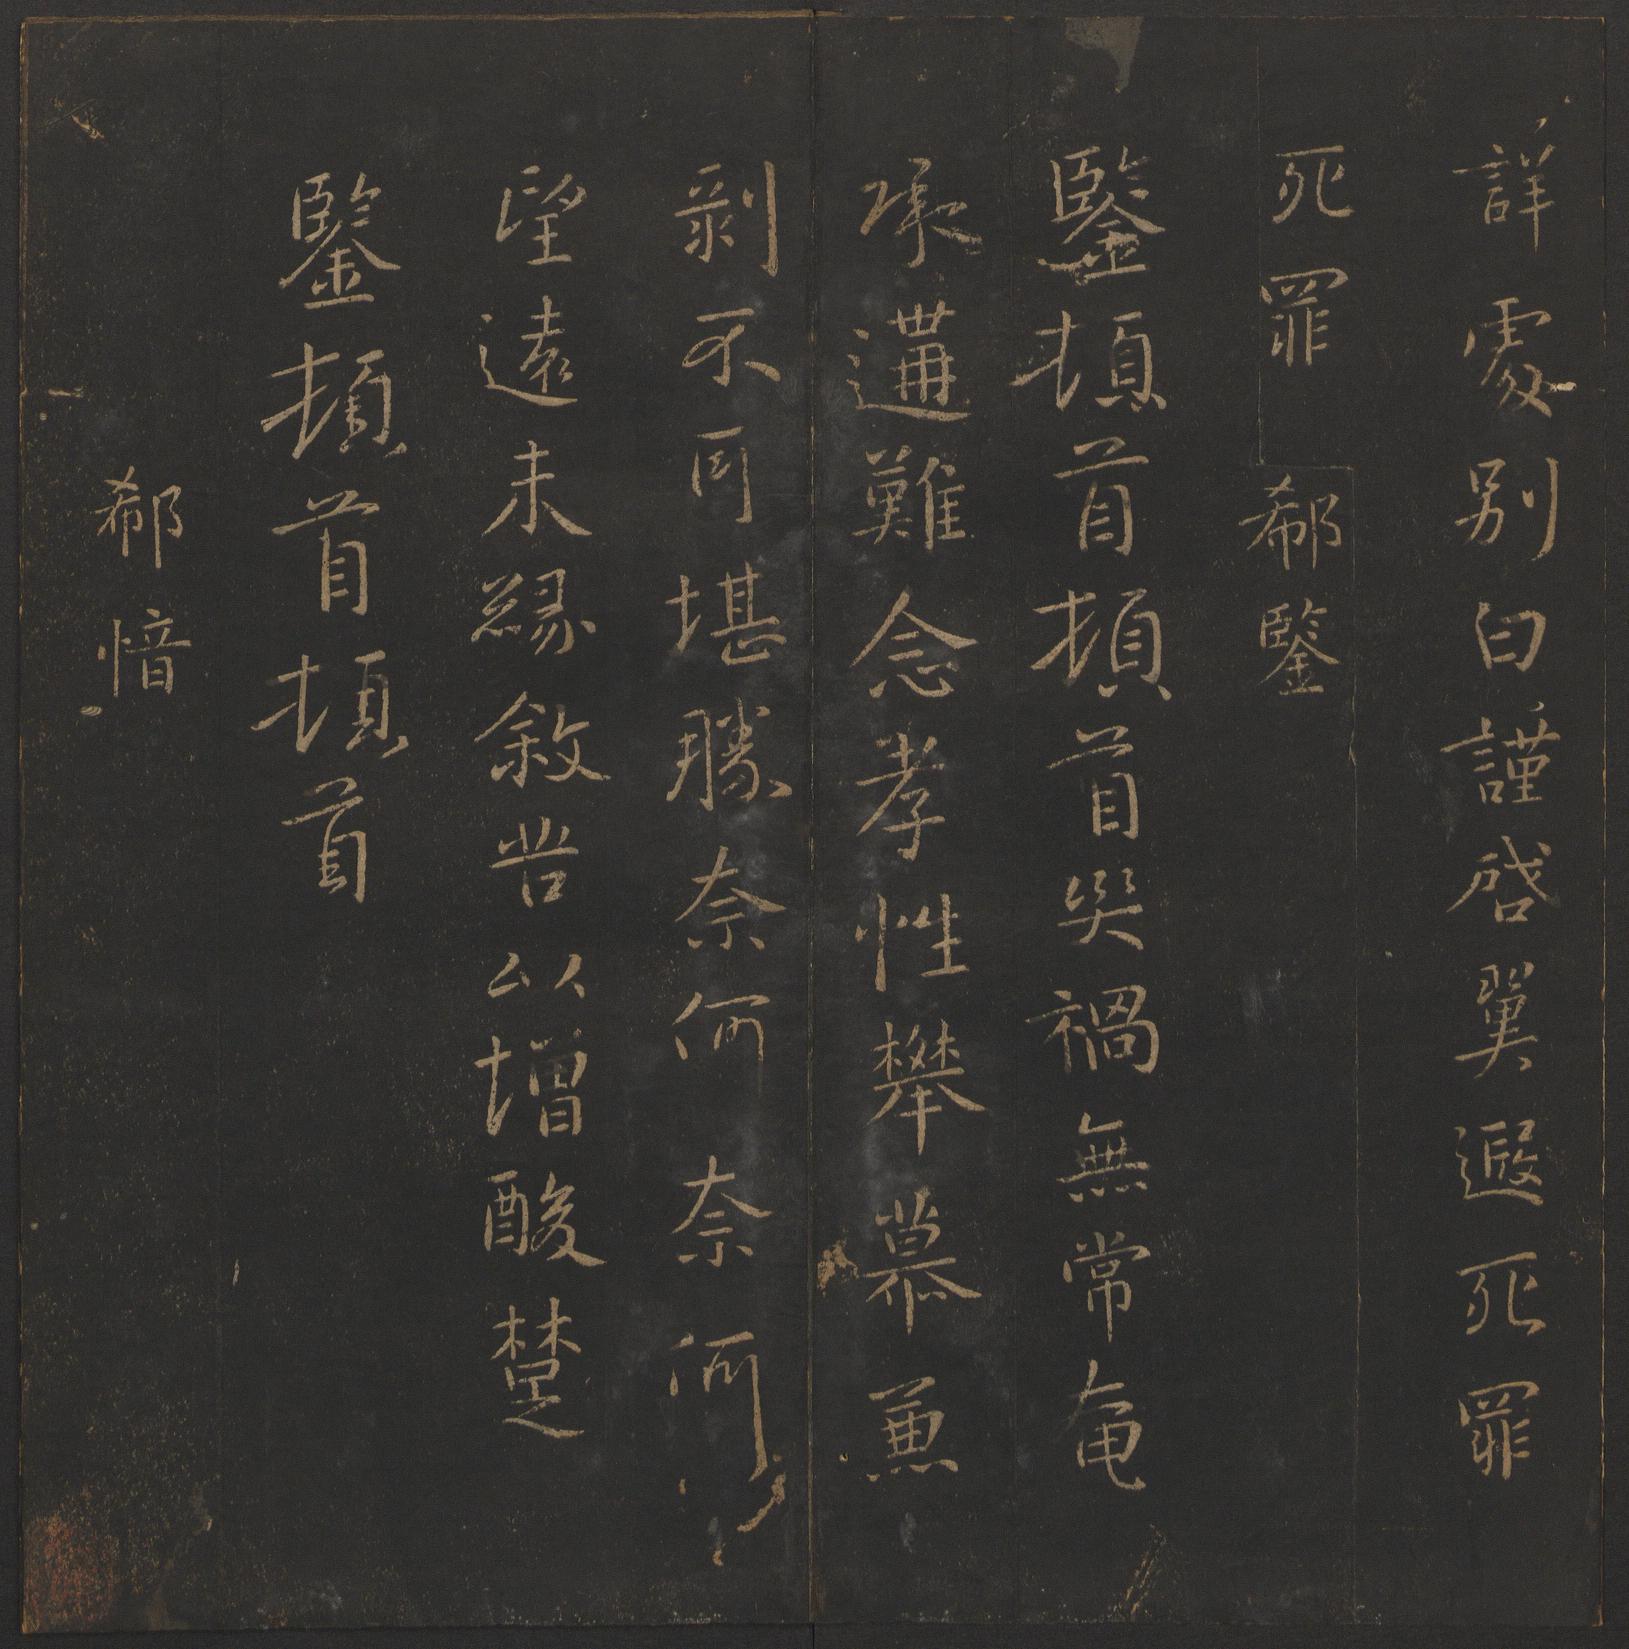 詳處別白謹啓翼遐死罪
死罪
郗鑒
鑒頓首頓首災禍無常奄
承遘難念孝性攀慕兼
剝不可堪勝奈何奈何
望遠未緣敘苦以增酸楚
鑒頓首頓首
郗愔